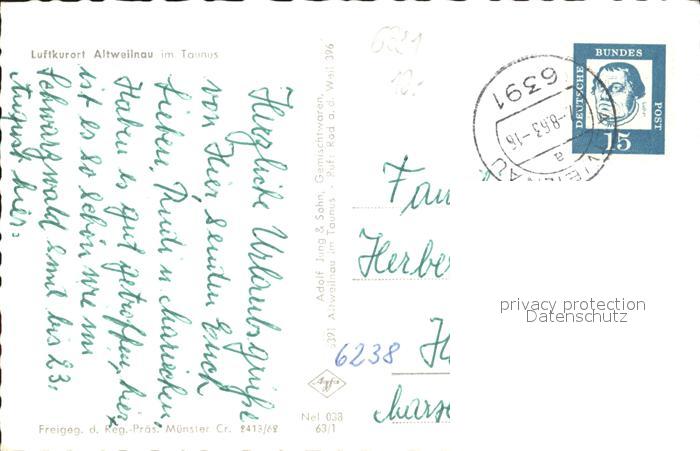 Luftkurort Altweilnau im Taunus
Herzliche Urlaubsgrüße
von Hier senden Euch
Lieben, Rudi u. Mariechen,
Haben es gut getroffen, hier
ist es so schön wie im
Schwarzwald sind bis 23.
August hier.
Freigeg. d. Reg.-Präs. Münster Cr. 2413/62
Adolf Jung & Sohn, Gemischtwaren
6391 Altweilnau im Taunus - Ruf: Rod a. d. Weil 396
Agfa
Nel 038
63/1
6391
10.-
6391
-8.63-16
a
DEUTSCHE
BUNDES
POST
15
Fam
Herbe
6238 H
privacy protection
Datenschutz